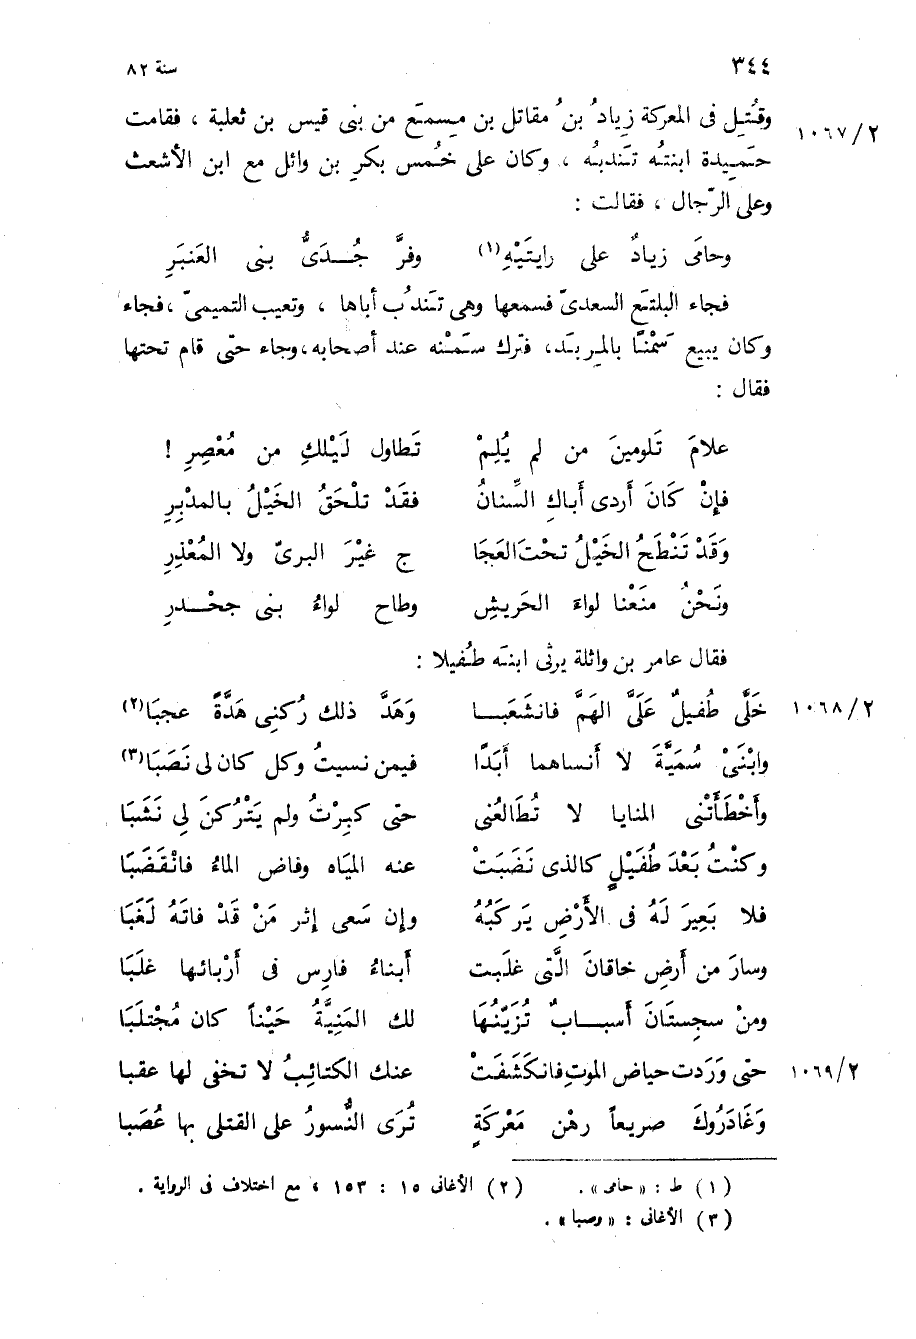 ٣٤٤ سنة ٨٢
١٠٦٧/٢ وقُتِل فى المعركة زيادُ بنُ مقاتل بن مِسمَع من بنى قيس بن ثعلبة ، فقامت
حَمِيدة ابنتُه تَندبُه ، وكان على خُمس بكرِ بن وائل مع ابن الأشعث
وعلى الرّجال ، فقالت :
وحامَى زيادٌ على رايتَيْهِ(١) وفرَّ جُــدَىُّ بنى العَنبَرِ
فجاء البلتَع السعدىّ فسمعها وهى تَندُب أباها ، وتعيب التميمىّ ، فجاء
وكان يبيع سَمْنًا بالمِربَد، فترك سَمْنه عند أصحابه، وجاء حتّى قام تحتها
فقال :
علامَ تَلومينَ من لم يُلِمْ تَطاول لَيْلكِ من مُعْصِرِ !
فإنْ كَانَ أَردى أَباكِ السِّنانُ فقَدْ تلْحَقُ الخَيْلُ بالمدْبِرِ
وَقَدْ تَنْطَحُ الخَيْلُ تحْتَ العَجَا ج غيْرَ البرىّ ولا المُعْذِرِ
ونَحْنُ منَعْنا لواءَ الحَريشِ وطاح لواءُ بنى جحْــدرِ
فقال عامر بن واثلة يرثى ابنَه طُفيلا :
١٠٦٨/٢ خَلَّى طُفيلٌ عَلَىَّ الهَمَّ فانشَعَبــا وَهَدَّ ذلك رُكنِى هَدَّةً عجبَا(٢)
وابْنَىْ سُمَيَّةَ لا أَنساهما أبَدًا فيمن نسيتُ وكل كان لى نَصَبَا(٣)
وأَخْطَأَتْنى المنايا لا تُطَالعُنى حتى كبِرْتُ ولم يَتْرُكنَ لِى نَشَبَا
وكنْتُ بَعْدَ طُفَيْلٍ كالذى نَضَبَتْ عنه المِيَاه وفاض الماءُ فانْقَضَبَا
فلا بَعِيرَ لَهُ فى الأَرْضِ يَركَبُهُ وإن سَعى إثر مَنْ قَدْ فاتَهُ لَغَبَا
وسارَ من أَرضِ خاقانَ الَّتى غلَبت أَبناءُ فارِس فى أَرْبائها غلَبَا
ومنْ سجِستَانَ أَسبــابٌ تُزَيّنُهَا لك المَنِيَّةُ حَيْناً كان مُجْتلَبَا
١٠٦٩/٢ حتى وَرَدت حياض الموتِ فانكَشَفَتْ عنك الكتائِبُ لا تخفى لها عقبا
وَغَادَرُوكَ صريعاً رهْن مَعْركَةٍ تُرَى النُّسورُ على القتلى بها عُصَبا
(١) ط : «حامى». (٢) الأغانى ١٥ : ١٥٣ ، مع اختلاف فى الرواية .
(٣) الأغانى : «وصبا» .